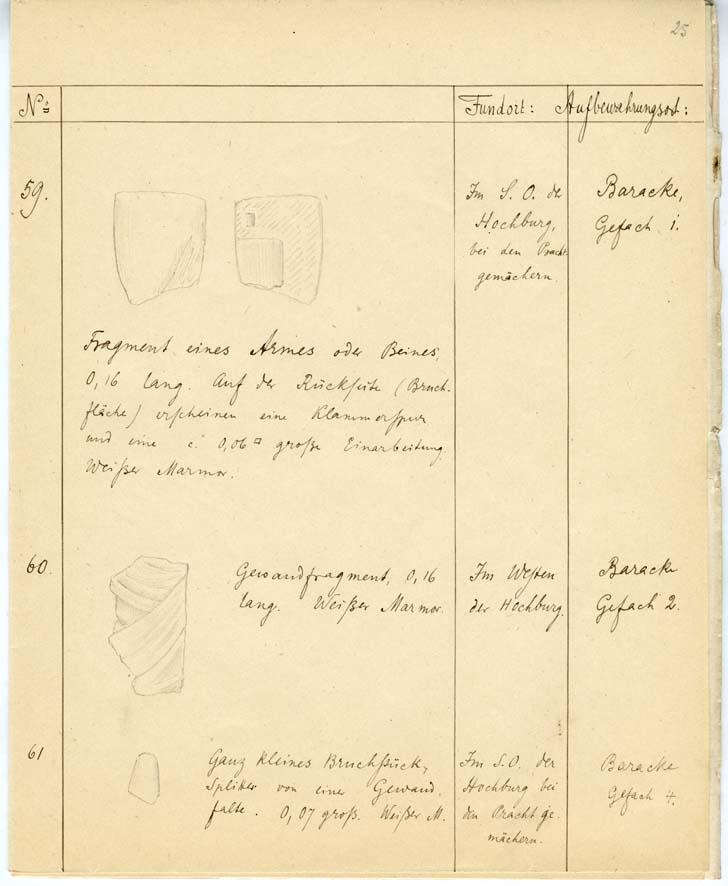 25
No: Fundort: Aufbewahrungsort:
59.
Im S. O. der
Hochburg,
bei den Pracht-
gemächern.
Baracke,
Gefach 1.
Fragment eines Armes oder Beines,
0,16 lang. Auf der Rückseite (Bruch-
fläche) erscheinen eine Klammerspur
und eine c. 0,06□ große Einarbeitung.
Weißer Marmor.
60.
Gewandfragment, 0,16
lang. Weißer Marmor.
Im Westen
der Hochburg.
Baracke
Gefach 2.
61
Ganz kleines Bruchstück,
Splitter von einer Gewand
falte. 0,07 groß. Weißer M.
Im S.O. der
Hochburg bei
den Prachtge-
mächern.
Baracke
Gefach 4.